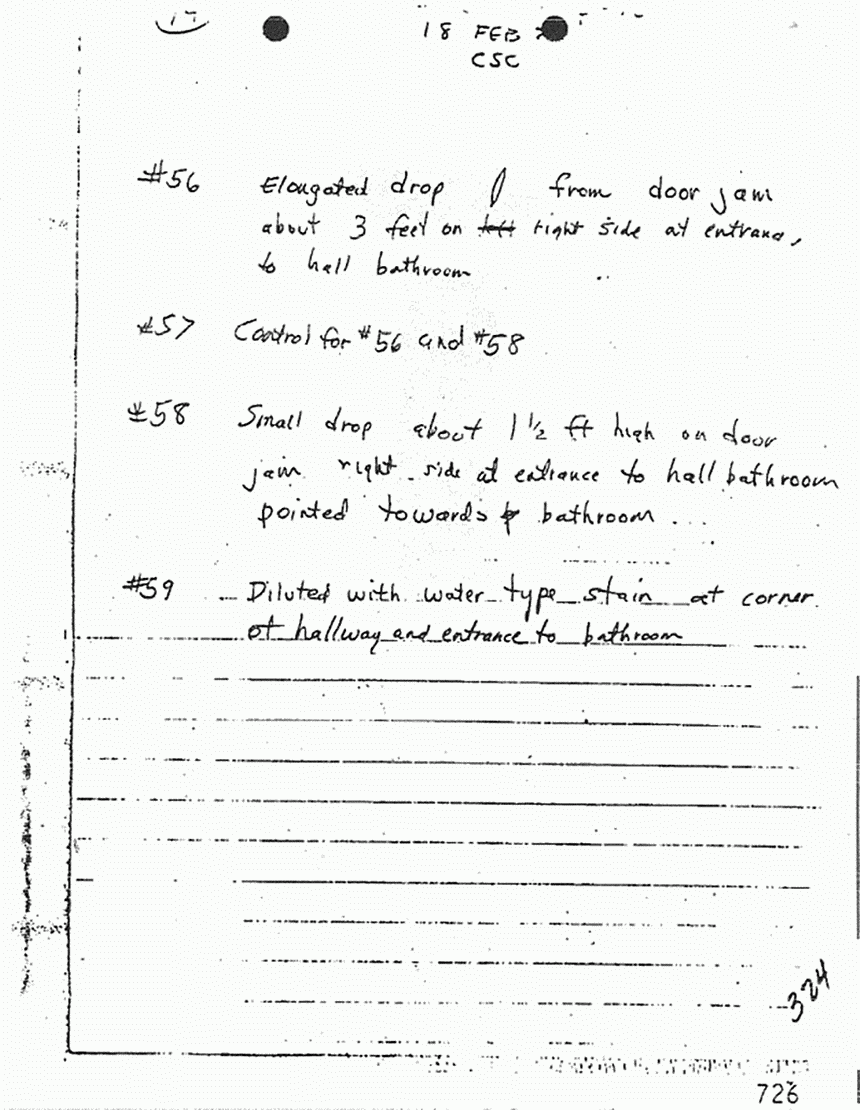 18 FEB
CSC
#56 Elongated drop from door jam
about 3 feet on left right side at entrance,
to hall bathroom
#57 Control for #56 and #58
#58 Small drop about 1 1/2 ft high on door
jam right side at entrance to hall bathroom
pointed towards bathroom
#59 Diluted with water type stain at corner
of hallway and entrance to bathroom
324
726